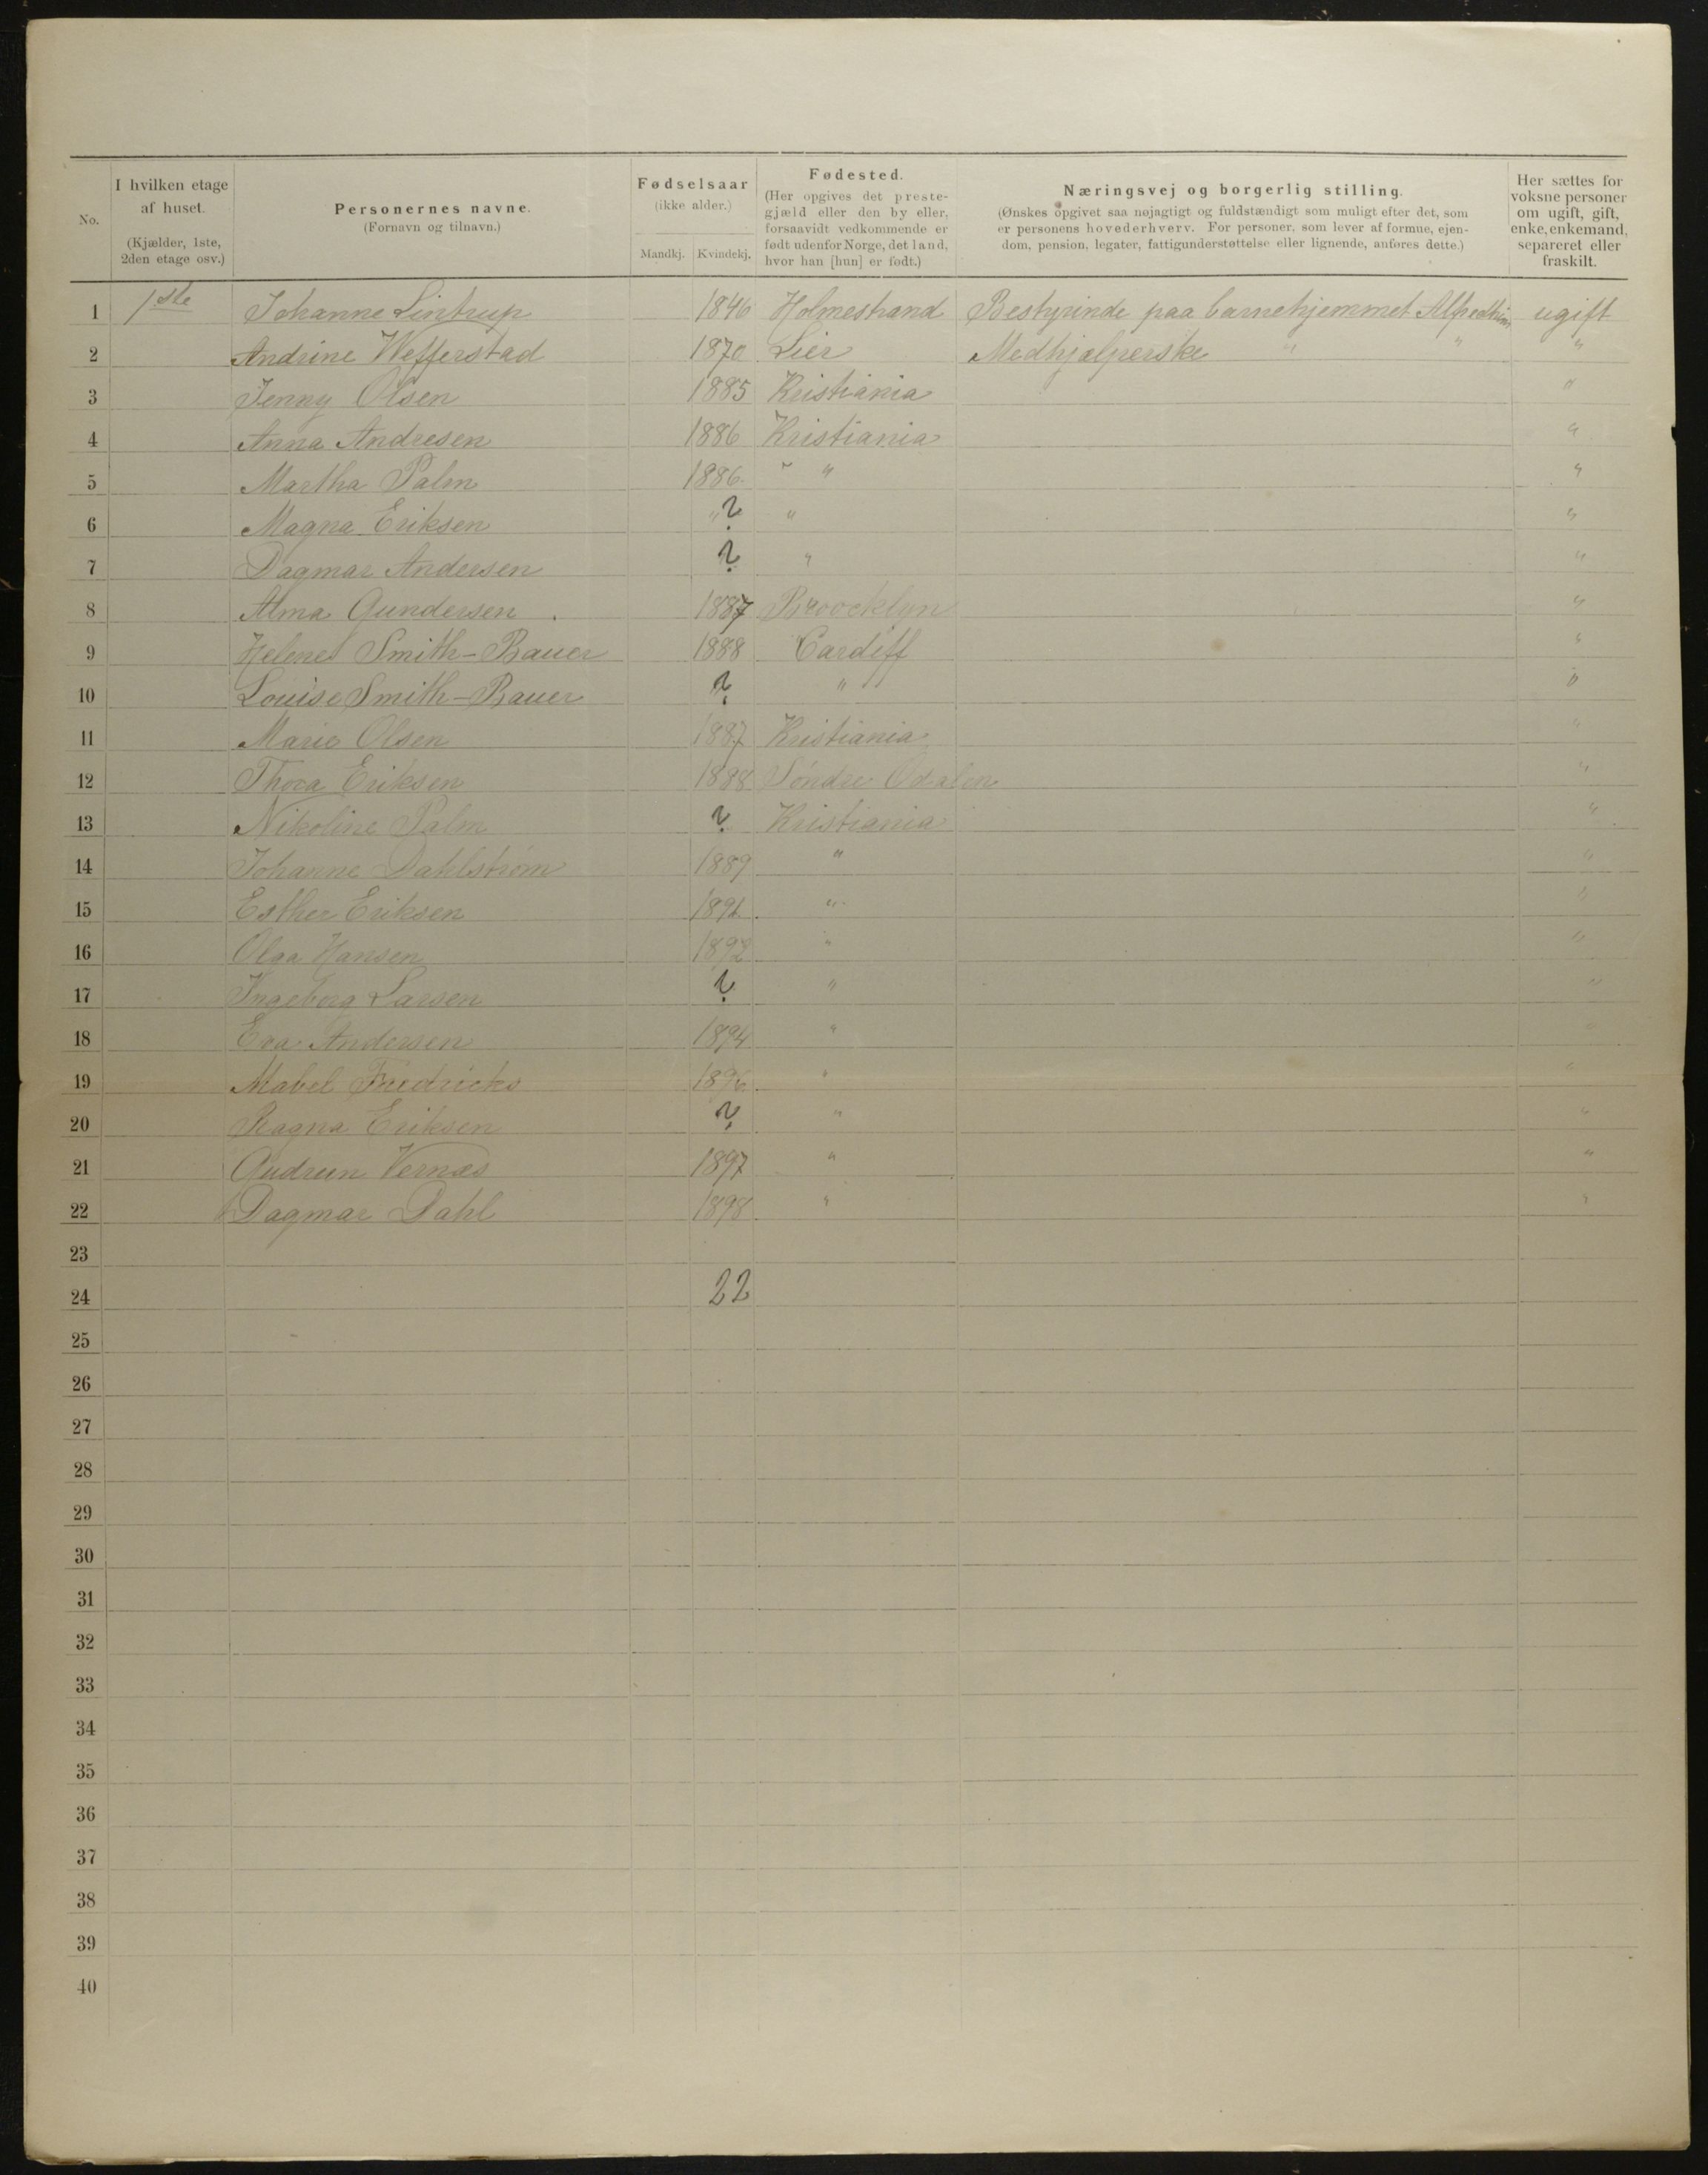 No.
I hvilken etage af huset.
(Kjælder, 1ste, 2den etage osv.)
Personernes navne.
(Fornavn og tilnavn.)
Fødselsaar
(ikke alder.)
Mandkj. Kvindekj.
Fødested.
(Her opgives det prestegjæld eller den by eller, forsaavidt vedkommende er født udenfor Norge, det land, hvor han [hun] er født.)
Næringsvej og borgerlig stilling.
(Ønskes opgivet saa nøjagtigt og fuldstændigt som muligt efter det, som er personens hovederhverv. For personer, som lever af formue, ejendom, pension, legater, fattigunderstøttelse eller lignende, anføres dette.)
Her sættes for voksne personer om ugift, gift, enke, enkemand, separeret eller fraskilt.
1 1ste Johanne Lintrup 1846 Holmestrand Bestyrinde paa barnehjemmet Alfredhim ugift
2 Andrine Wefferstad 1870 Lier Medhjælperske " " "
3 Jenny Olsen 1885 Kristiania "
4 Anna Andresen 1886 Kristiania "
5 Martha Palm 1886 " " "
6 Magna Eriksen " ? " "
7 Dagmar Andersen ? " "
8 Alma Gundersen 1887 Broocklyn "
9 Helene Smith-Bauer 1888 Cardiff "
10 Louise Smith-Bauer ? " "
11 Marie Olsen 1887 Kristiania "
12 Thora Eriksen 1888 Søndre Odalen "
13 Nikoline Palm ? Kristiania "
14 Johanne Dahlstrøm 1889 " "
15 Esther Eriksen 1891 " "
16 Olga Hansen 1892 " "
17 Ingeborg Larsen ? " "
18 Eva Andersen 1894 "
19 Mabel Fredricks 1896 " "
20 Ragna Eriksen ? " "
21 Gudrun Vernæs 1897 " "
22 Dagmar Dahl 1898 " "
23
24 22
25
26
27
28
29
30
31
32
33
34
35
36
37
38
39
40